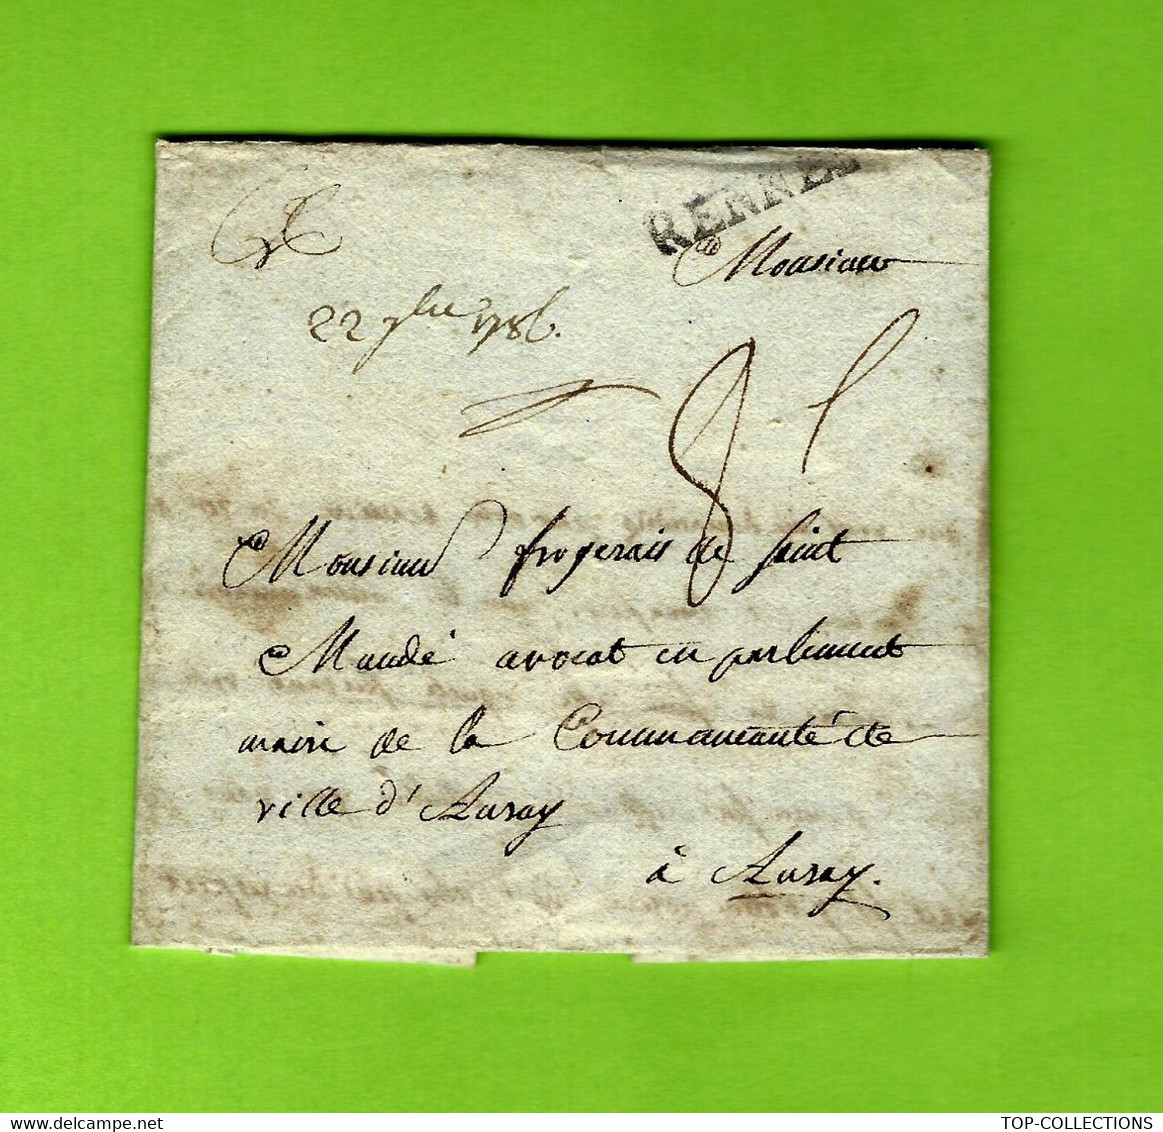 RENNES
Monsieur
22 9bre 1786.
8
Monsieur frogerais de saint
Maudé avocat en parlement
maire de la Communauté de
ville d'Auray
à Auray.
TOP-COLLECTIONS